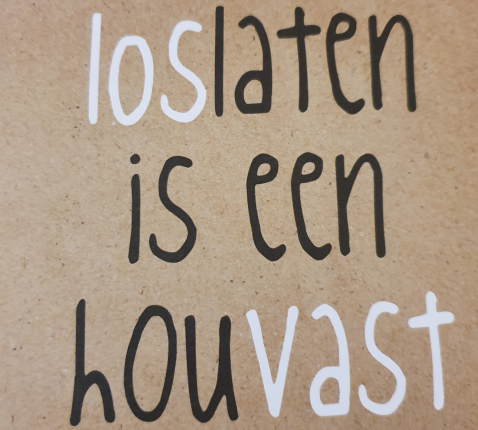 loslaten
is een
houvast